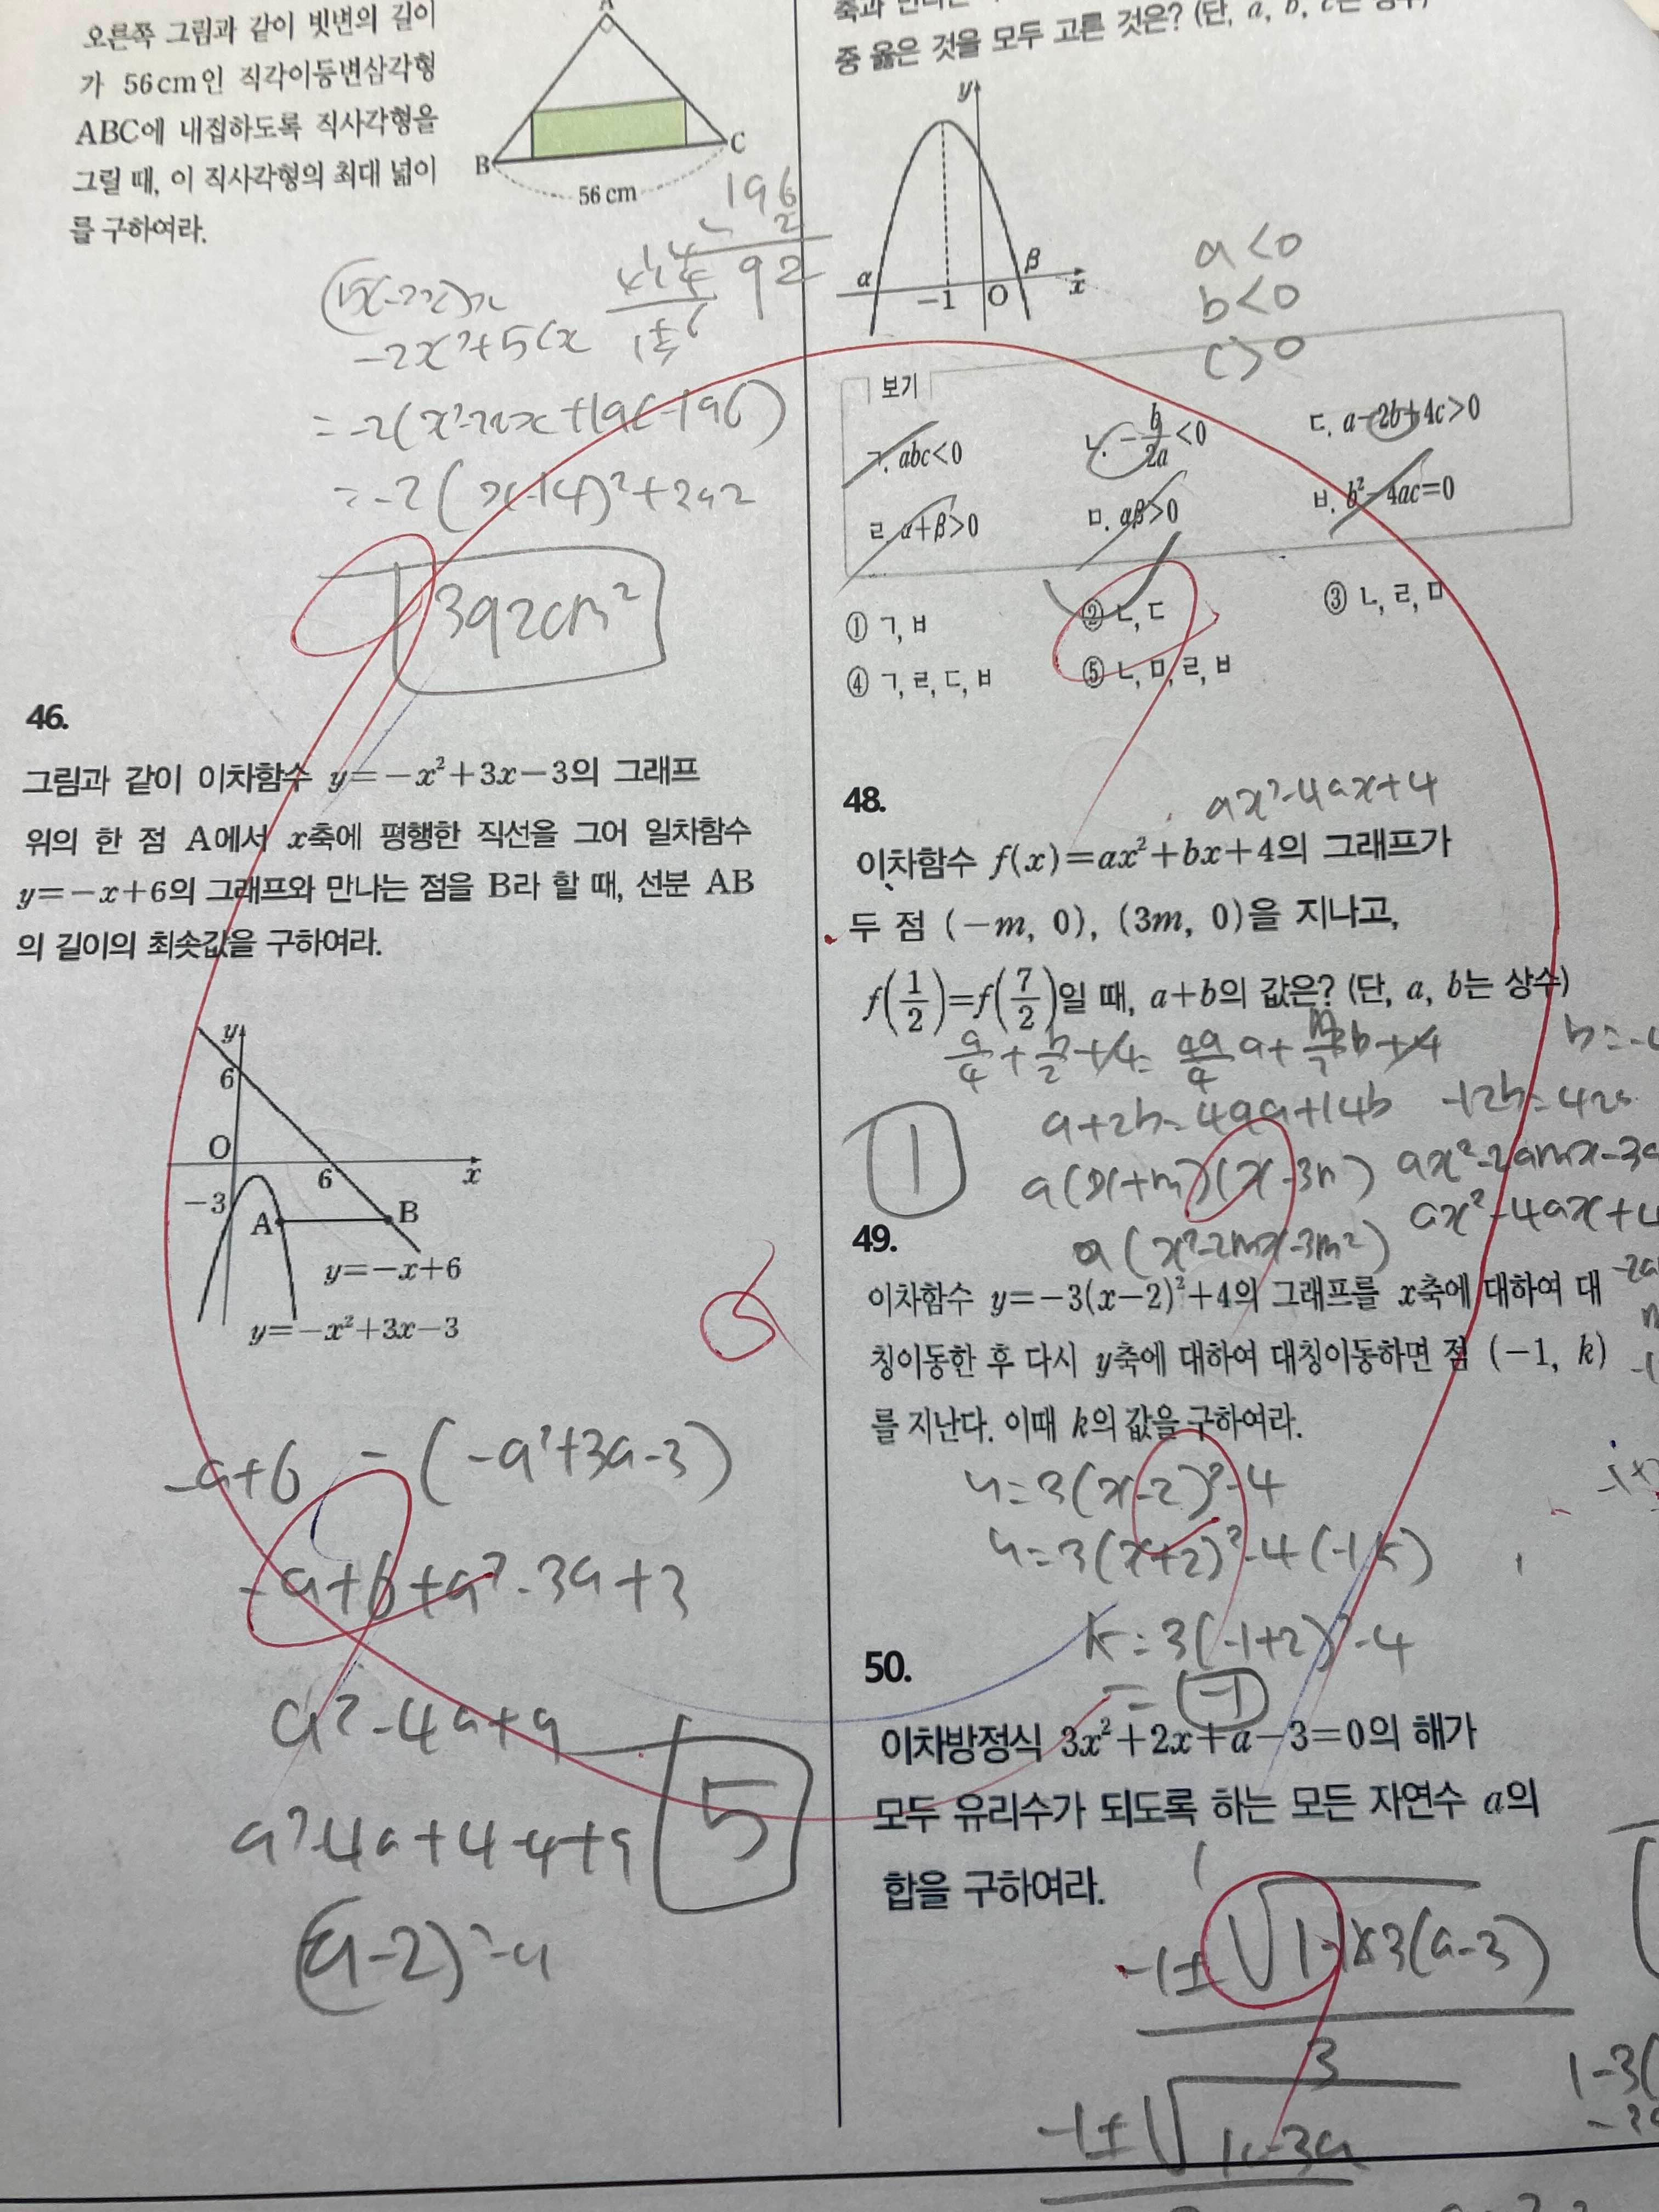 오른쪽 그림과 같이 빗변의 길이
가 56cm인 직각이등변삼각형
ABC에 내접하도록 직사각형을
그릴 때, 이 직사각형의 최대 넓이
를 구하여라.
A
B
C
56 cm
196
2
92
-2x²+56x
=-2(x²-28x+196-196)
=-2(x-14)²+392
392cm²
46.
그림과 같이 이차함수 y=-x²+3x-3의 그래프
위의 한 점 A에서 x축에 평행한 직선을 그어 일차함수
y=-x+6의 그래프와 만나는 점을 B라 할 때, 선분 AB
의 길이의 최솟값을 구하여라.
y
6
O
6
x
-3
A
B
y=-x+6
y=-x²+3x-3
-a+6 -(-a²+3a-3)
-a+6+a²-3a+3
a²-4a+9
5
a²-4a+4-4+9
중 옳은 것을 모두 고른 것은? (단, a, b, c는 상수)
y
α
β
-1
O
x
a<0
b<0
c>0
보기
ㄱ. abc<0
ㄴ. -b/2a<0
ㄷ. a-2b+4c>0
ㄹ. α+β>0
ㅁ. αβ>0
ㅂ. b²-4ac=0
① ㄱ, ㅂ
② ㄴ, ㄷ
③ ㄴ, ㄹ, ㅁ
④ ㄱ, ㄹ, ㄷ, ㅂ
⑤ ㄴ, ㅁ, ㄹ, ㅂ
48.
ax²-4ax+4
이차함수 f(x)=ax²+bx+4의 그래프가
두 점 (-m, 0), (3m, 0)을 지나고,
f(1/2)=f(7/2)일 때, a+b의 값은? (단, a, b는 상수)
a+2b=49a+14b
1
a(x+m)(x-3m)
a(x²-2mx-3m²)
ax²-4ax+4
49.
이차함수 y=-3(x-2)²+4의 그래프를 x축에 대하여 대
칭이동한 후 다시 y축에 대하여 대칭이동하면 점 (-1, k)
를 지난다. 이때 k의 값을 구하여라.
y=3(x-2)²-4
y=3(x+2)²-4 (-1,k)
k=3(-1+2)²-4
=-1
50.
이차방정식 3x²+2x+a-3=0의 해가
모두 유리수가 되도록 하는 모든 자연수 a의
합을 구하여라.
3